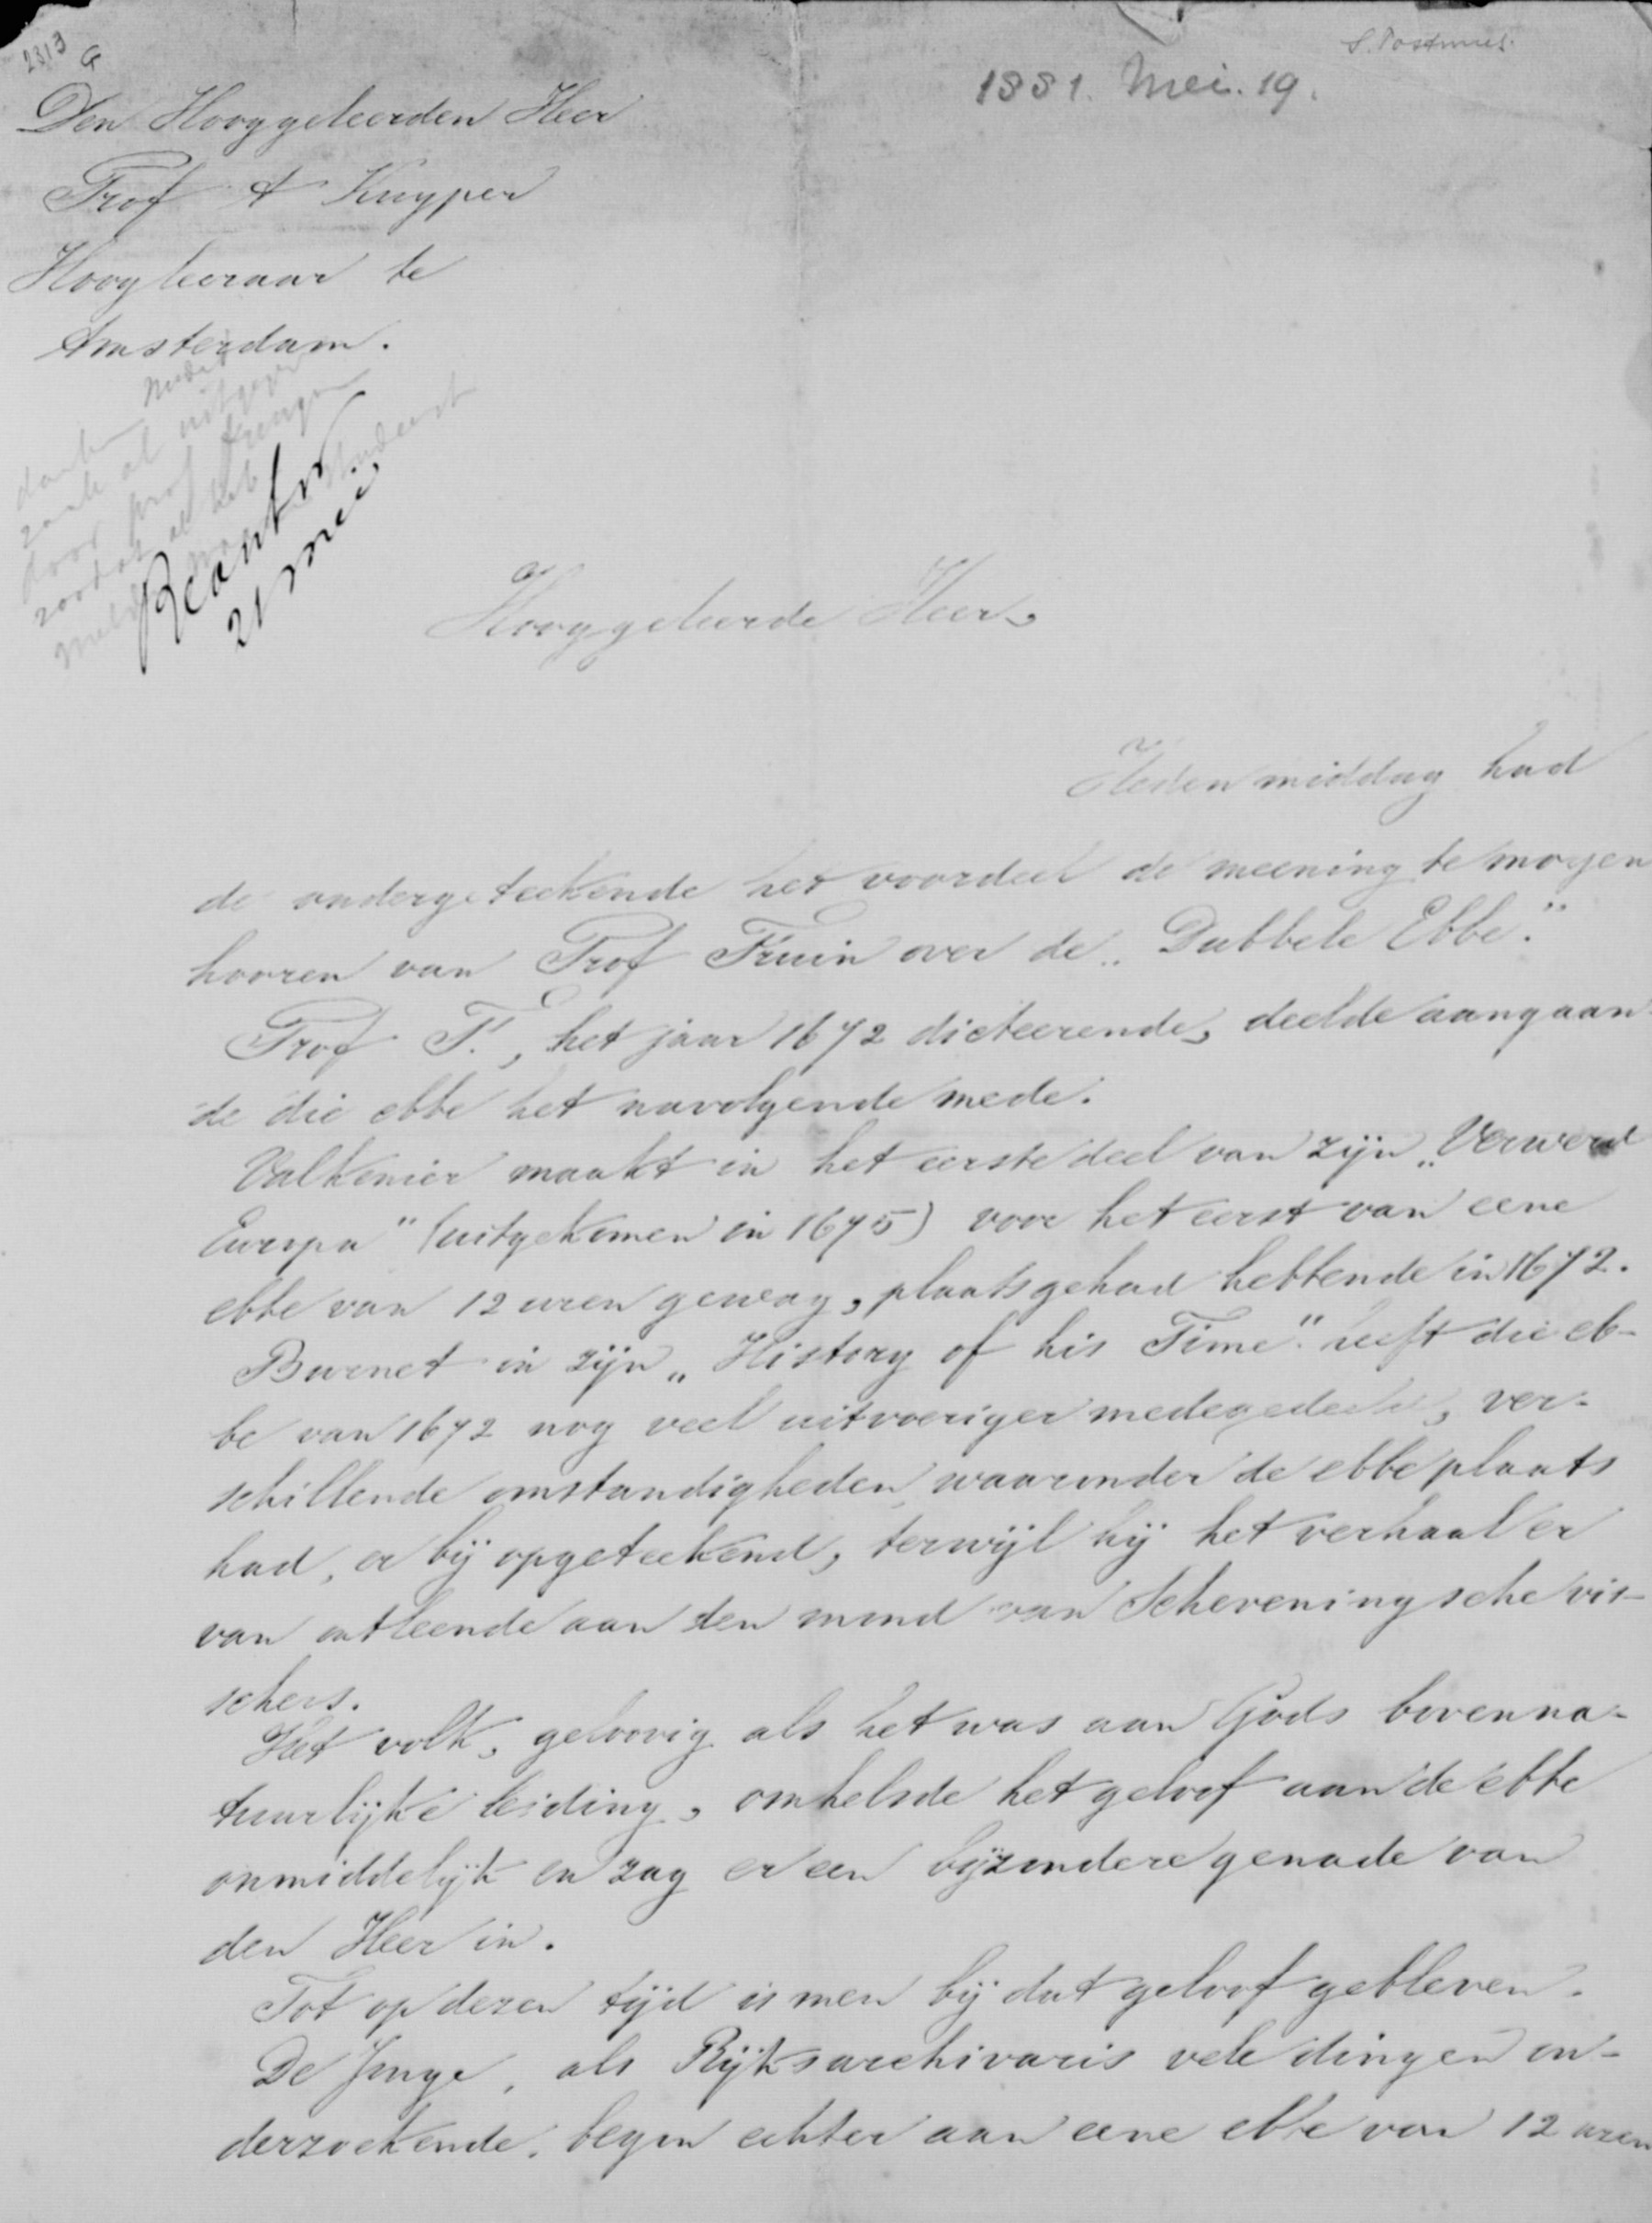 2313 G
S. Postmus.
1881. Mei. 19.
Den Hooggeleerden Heer
Prof A Kuyper
Hoogleeraar te
Amsterdam.
door prof
zoodat
Beantw
21 Mei
Hooggeleerde Heer,
Heden middag had
de ondergeteekende het voordeel de meening te mogen
hooren van Prof Fruin over de „Dubbele Ebbe."
Prof F., het jaar 1672 dicteerende, deelde aangaan-
de die ebbe het navolgende mede.
Valkenier maakt in het eerste deel van zijn „Verwerd
Europa" (uitgekomen in 1675) voor het eerst van eene
ebbe van 12 uren gewag, plaats gehad hebbende in 1672.
Burnet in zijn „History of his Time" heeft die eb-
be van 1672 nog veel uitvoeriger medegedeeld, ver-
schillende omstandigheden, waaronder de ebbe plaats
had, er bij opgeteekend, terwijl hij het verhaal er
van ontleende aan den mond van Scheveningsche vis-
schers.
Het volk, geloovig als het was aan Gods bovenna-
tuurlijke leiding, omhelsde het geloof aan de ebbe
onmiddelijk en zag er een bijzondere genade van
den Heer in.
Tot op dezen tijd is men bij dat geloof gebleven.
De Jonge, als Rijksarchivaris vele dingen on-
derzoekende, begon echter aan eene ebbe van 12 uren